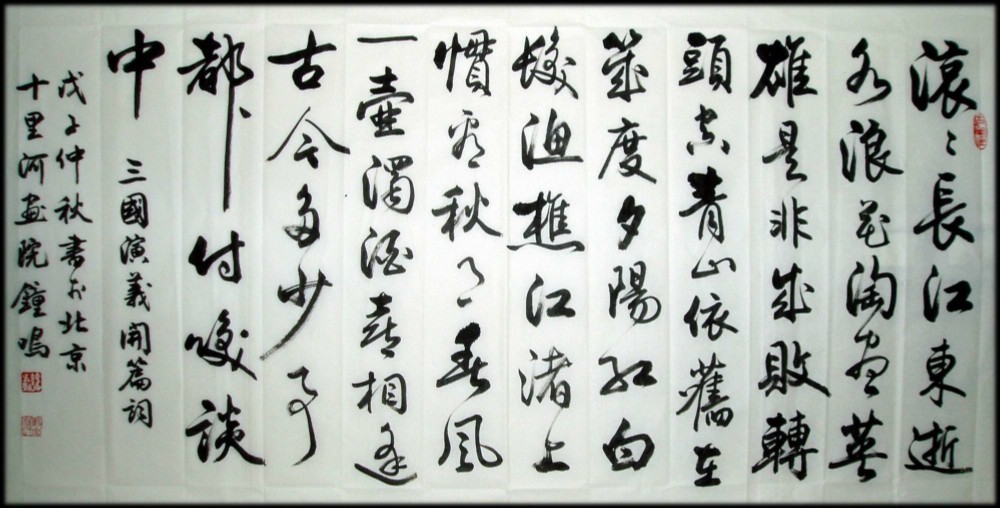 滚〻長江東逝
水浪花淘盡英
雄是非成敗轉
頭空青山依舊在
幾度夕陽紅白
髮漁樵江渚上
慣看秋月春風
一壺濁酒喜相逢
古今多少事
都〻付笑談
中
三國演義開篇詞
戊子仲秋書於北京
十里河畫院鐘鳴